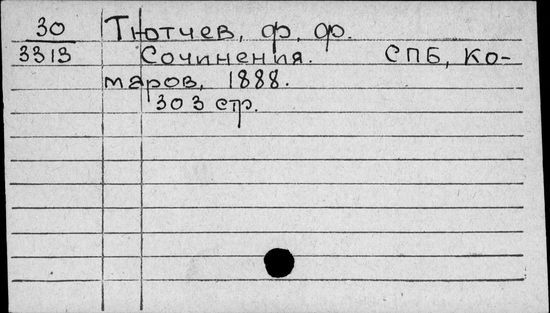 30 Тютчев, Ф. Ф.
3313 Сочинения. СПБ, Ко-
маров, 1888.
303 стр.